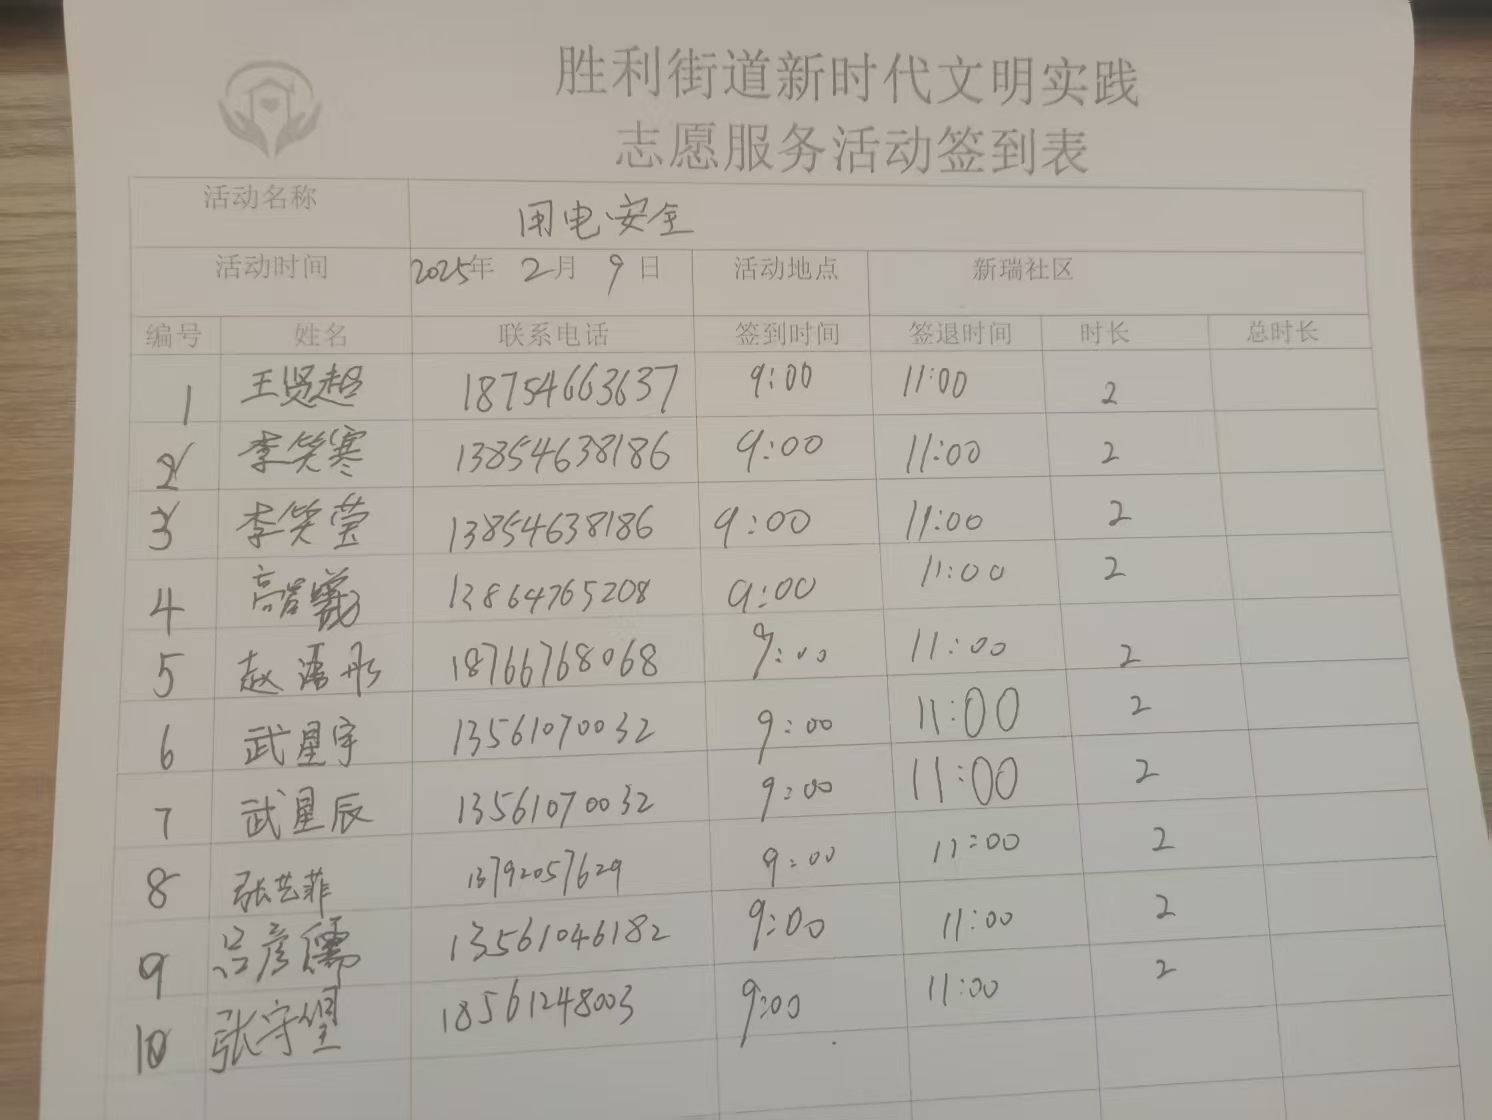 胜利街道新时代文明实践
志愿服务活动签到表
活动名称 用电安全
活动时间 2025年 2月 9日 活动地点 新瑞社区
编号 姓名 联系电话 签到时间 签退时间 时长 总时长
1 王贤超 18754663637 9:00 11:00 2
2 李笑寒 13854638186 9:00 11:00 2
3 李笑莹 13854638186 9:00 11:00 2
4 高 13864765208 9:00 11:00 2
5 赵 彤 18766768068 9:00 11:00 2
6 武星宇 13561070032 9:00 11:00 2
7 武星辰 13561070032 9:00 11:00 2
8 张艺菲 13792057629 9:00 11:00 2
9 吕彦儒 13561046182 9:00 11:00 2
10 张守 18561248003 9:00 11:00 2